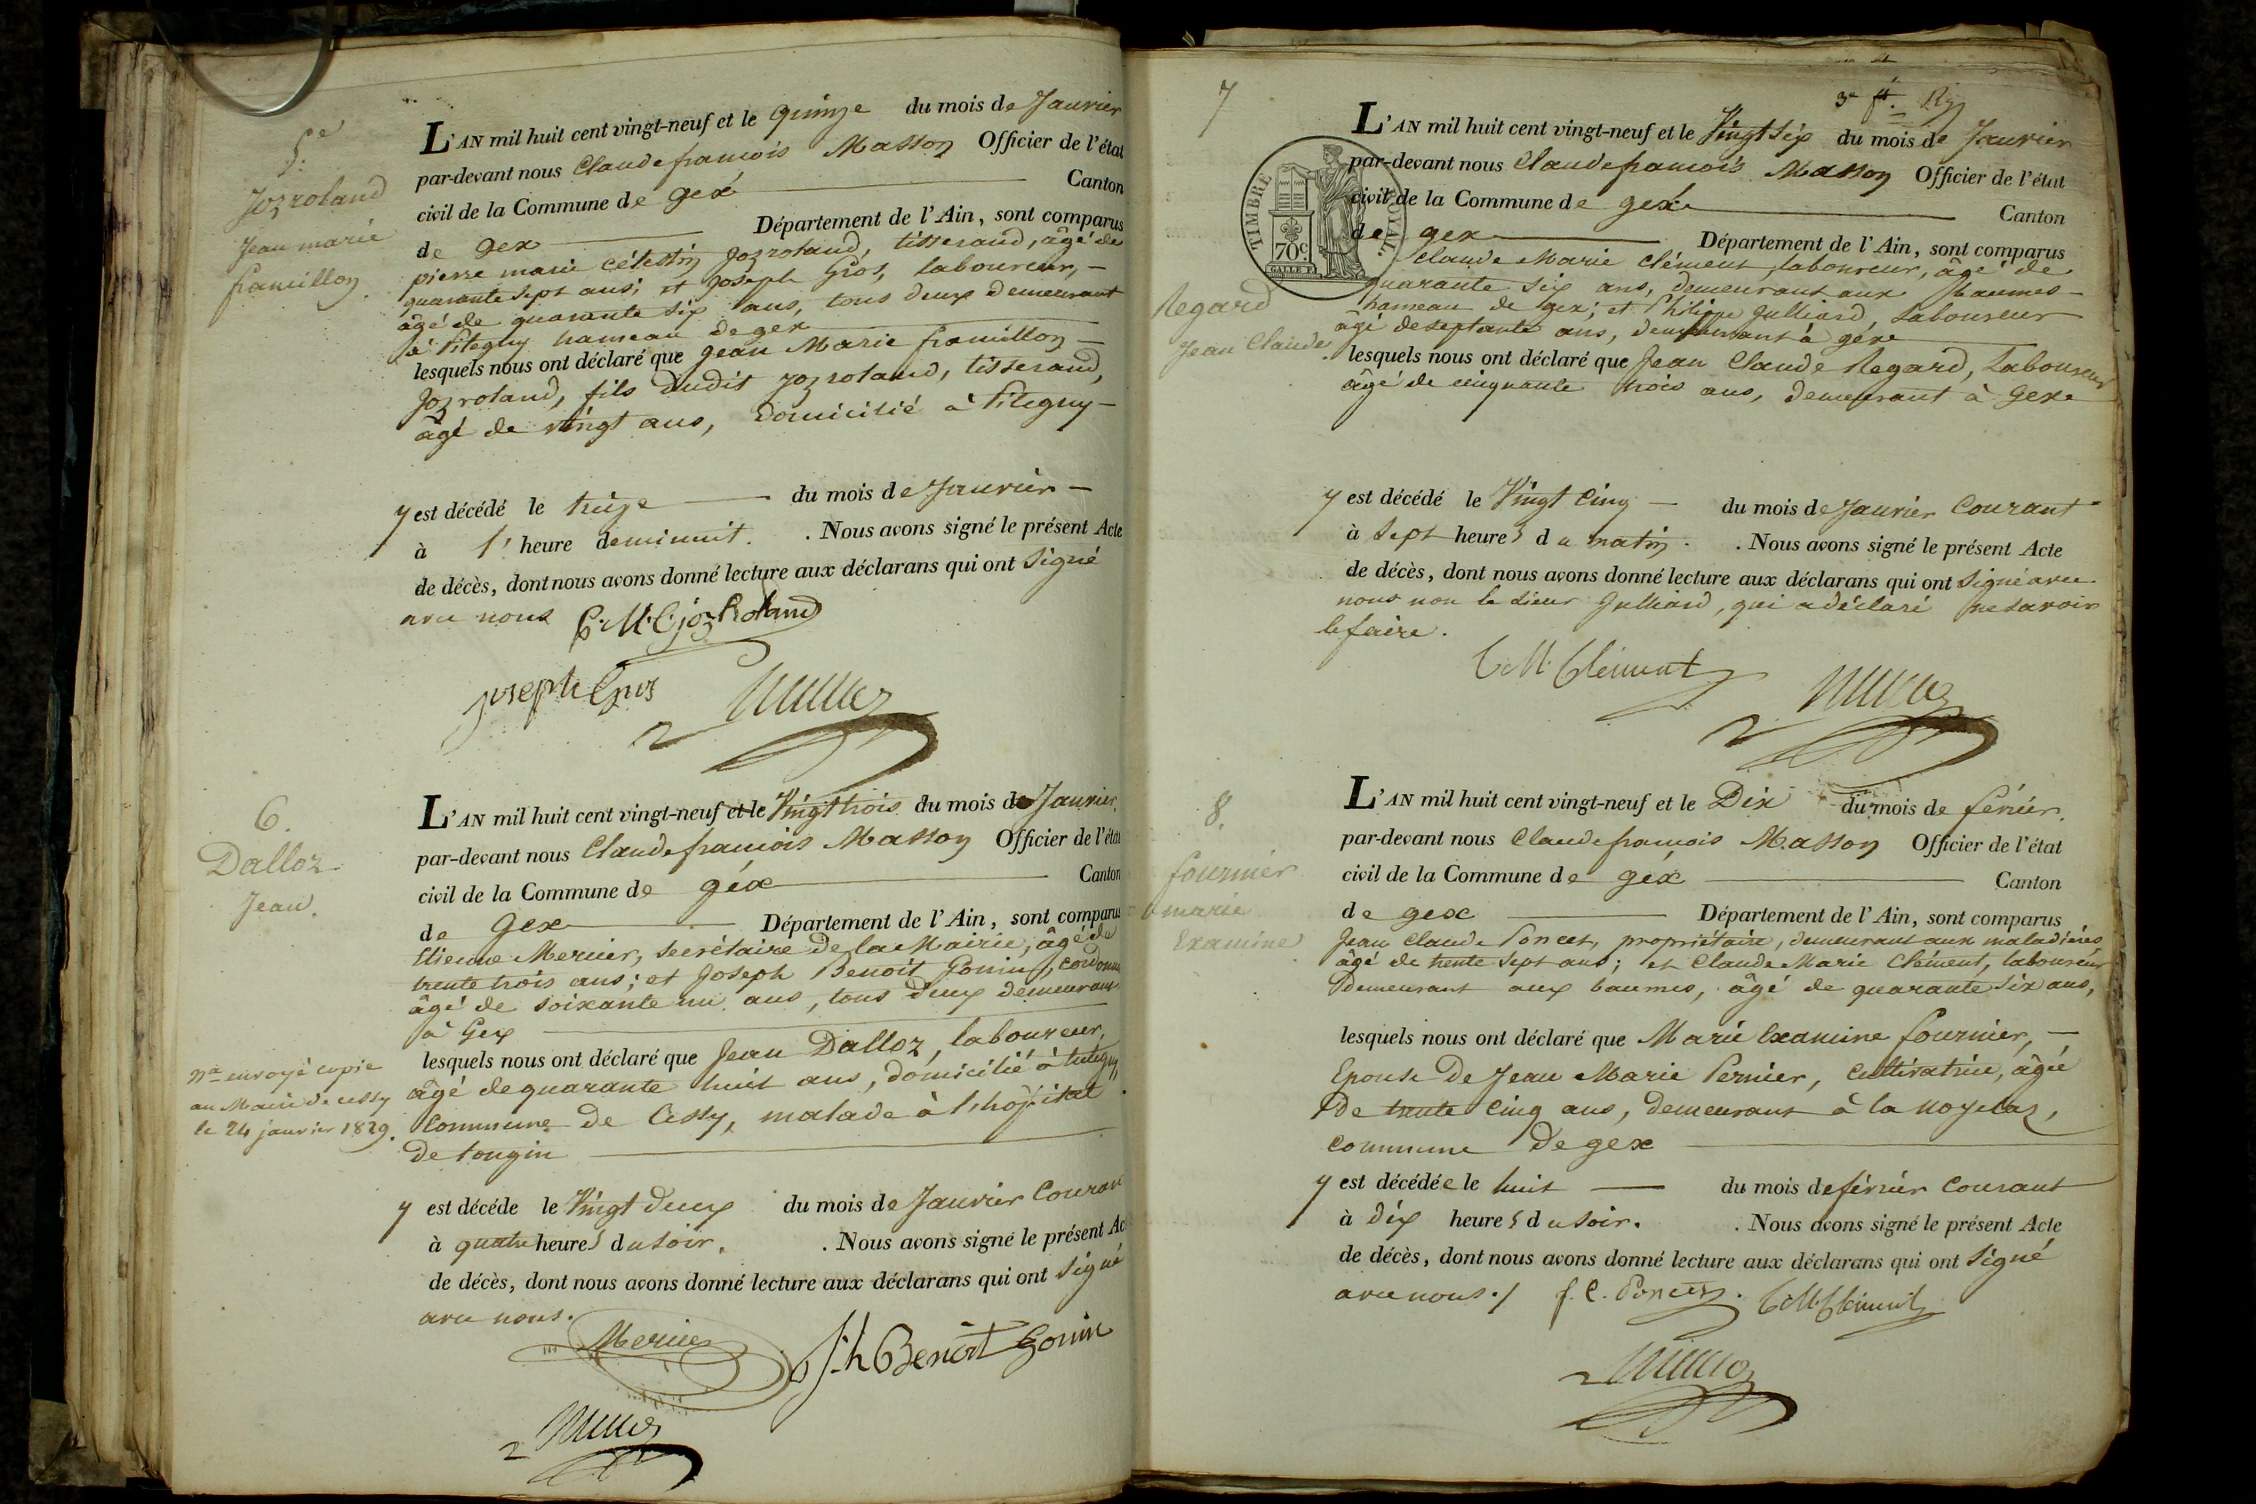 5.e
Jozroland
Jean marie
franillon.
L'AN mil huit cent vingt-neuf et le quinze du mois de Janvier
par-devant nous Claude francois Masson Officier de l'état
civil de la Commune de gex Canton
de gex Département de l'Ain, sont comparus
pierre marie Célestin Jozroland, tisserand, âgé de
quarante sept ans; et Joseph Gros, laboureur,
âgé de quarante six ans, tous deux demeurant
à Pitegny hameau de gex
lesquels nous ont déclaré que Jean Marie franillon
Jozroland, fils dudit Jozroland, tisserand,
âgé de vingt ans, domicilié à Pitegny
y est décédé le treize du mois de Janvier
à 1' heure de minuit. . Nous avons signé le présent Acte
de décès, dont nous avons donné lecture aux déclarans qui ont Signé
avec nous P. M. C. joz Roland
joseph Gros
6.
Dalloz
Jean.
na envoyé copie
au Maire de cessy
le 24 janvier 1829.
L'AN mil huit cent vingt-neuf et le Vingt trois du mois de Janvier.
par-devant nous Claude francois Masson Officier de l'état
civil de la Commune de géx Canton
de Gex Département de l'Ain, sont comparus
Etienne Mercier, Secrétaire de la Mairie, âgé de
trente trois ans; et Joseph Benoit Gonin, cordonn
âgé de soixante un ans, tous deux demeurans
à Gex
lesquels nous ont déclaré que Jean Dalloz, laboureur,
âgé de quarante huit ans, domicilié à
Commune de Cessy, malade à l'hôpital
de tougin
y est décédé le Vingt Deux du mois de Janvier Couran
à quatre heures du soir. . Nous avons signé le présent Ac
de décès, dont nous avons donné lecture aux déclarans qui ont Signé
avec nous.
Mercier
Jh Benoit Gonin
7
3e
Regard
Jean Claude
TIMBRE ROYAL.
70c.
L'AN mil huit cent vingt-neuf et le Vingt Six du mois de Janvier
par-devant nous Claude francois Masson Officier de l'état
civil de la Commune de gex Canton
de gex Département de l'Ain, sont comparus
Claude Marie Clément, laboureur, âgé de
quarante six ans, demeurant aux Baumes
hameau de gex; et Philippe Julliard, Laboureur
âgé de septante ans, demeurant à géx
lesquels nous ont déclaré que Jean Claude Regard, Laboureur
âgé de cinquante trois ans, demeurant à Gex
y est décédé le Vingt Cinq du mois de Janvier Courant
à Sept heures du matin. . Nous avons signé le présent Acte
de décès, dont nous avons donné lecture aux déclarans qui ont Signé avec
nous non le Sieur Julliard, qui a déclaré ne savoir
le faire.
C. M. Clément
8.
fournier
marie
Examine
L'AN mil huit cent vingt-neuf et le Dix du mois de férier.
par-devant nous Claude francois Masson Officier de l'état
civil de la Commune de géx Canton
de gex Département de l'Ain, sont comparus
Jean Claude Poncet, propriétaire, demeurant aux maladières
âgé de trente sept ans; et Claude Marie Clément, laboureur
Demeurant aux baumes, âgé de quarante six ans,
lesquels nous ont déclaré que Marie Examine fournier,
Epouse De Jean Marie Pernier, Cultivatrice, âgée
De trente cinq ans, demeurant à la noyelaz,
commune De gex
y est décédée le huit du mois de février Courant
à Dix heures du soir. . Nous avons signé le présent Acte
de décès, dont nous avons donné lecture aux déclarans qui ont Signé
avec nous. / J. C. Poncet. C. M. Clément